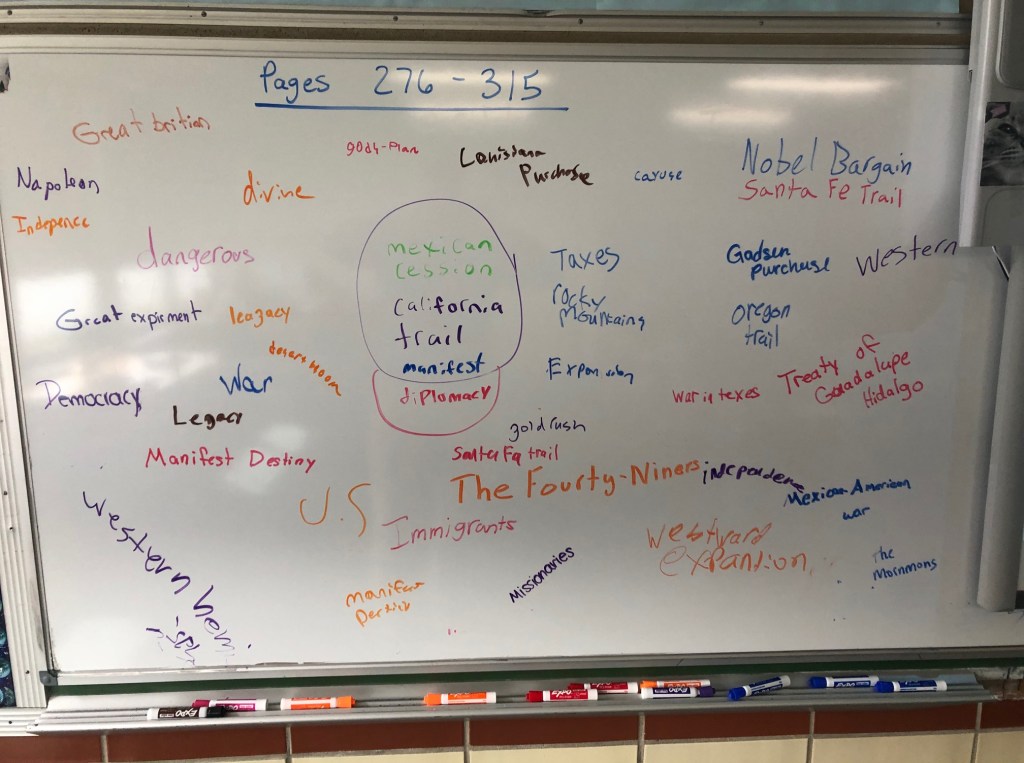 Pages 276-315
Great brition
god4-Plan
Louisiana
Purchase
cayuse
Nobel Bargain
Santa Fe Trail
Napoleon
divine
Indepence
dangerous
mexican
cession
Taxes
Gadsen
purchase
Western
Great expirment
leagacy
california
trail
rocky
mountains
oregon
trail
manifest
diplomacy
War
Democracy
Legacy
war in texes
Treaty of
Guadalupe
Hidalgo
gold rush
Manifest Destiny
Santa Fe trail
The Fourty-Niners
Mexican-American
war
U.S
Immigrants
western hemi
-sph
westward
expantion
Missionaries
The
Mornmons
manifest
EXPO